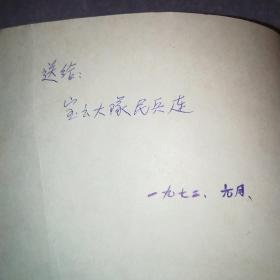 送给:
宝云大隊民兵连
一九七二、六月、